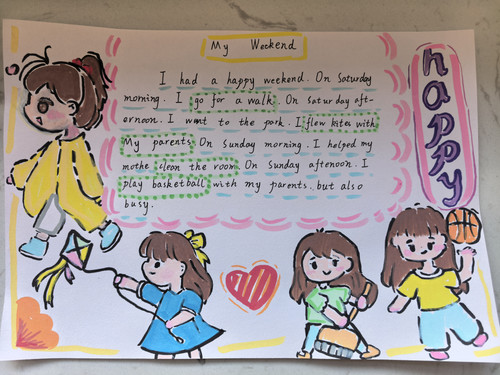 My Weekend
I had a happy weekend. On Saturday
morning. I go for a walk. On Saturday aft-
ernoon. I want to the park. I flew kites with
My parents On Sunday morning. I helped my
mothe clean the room On Sunday afternoon. I
play basketball with my parents. but also
busy.
happy